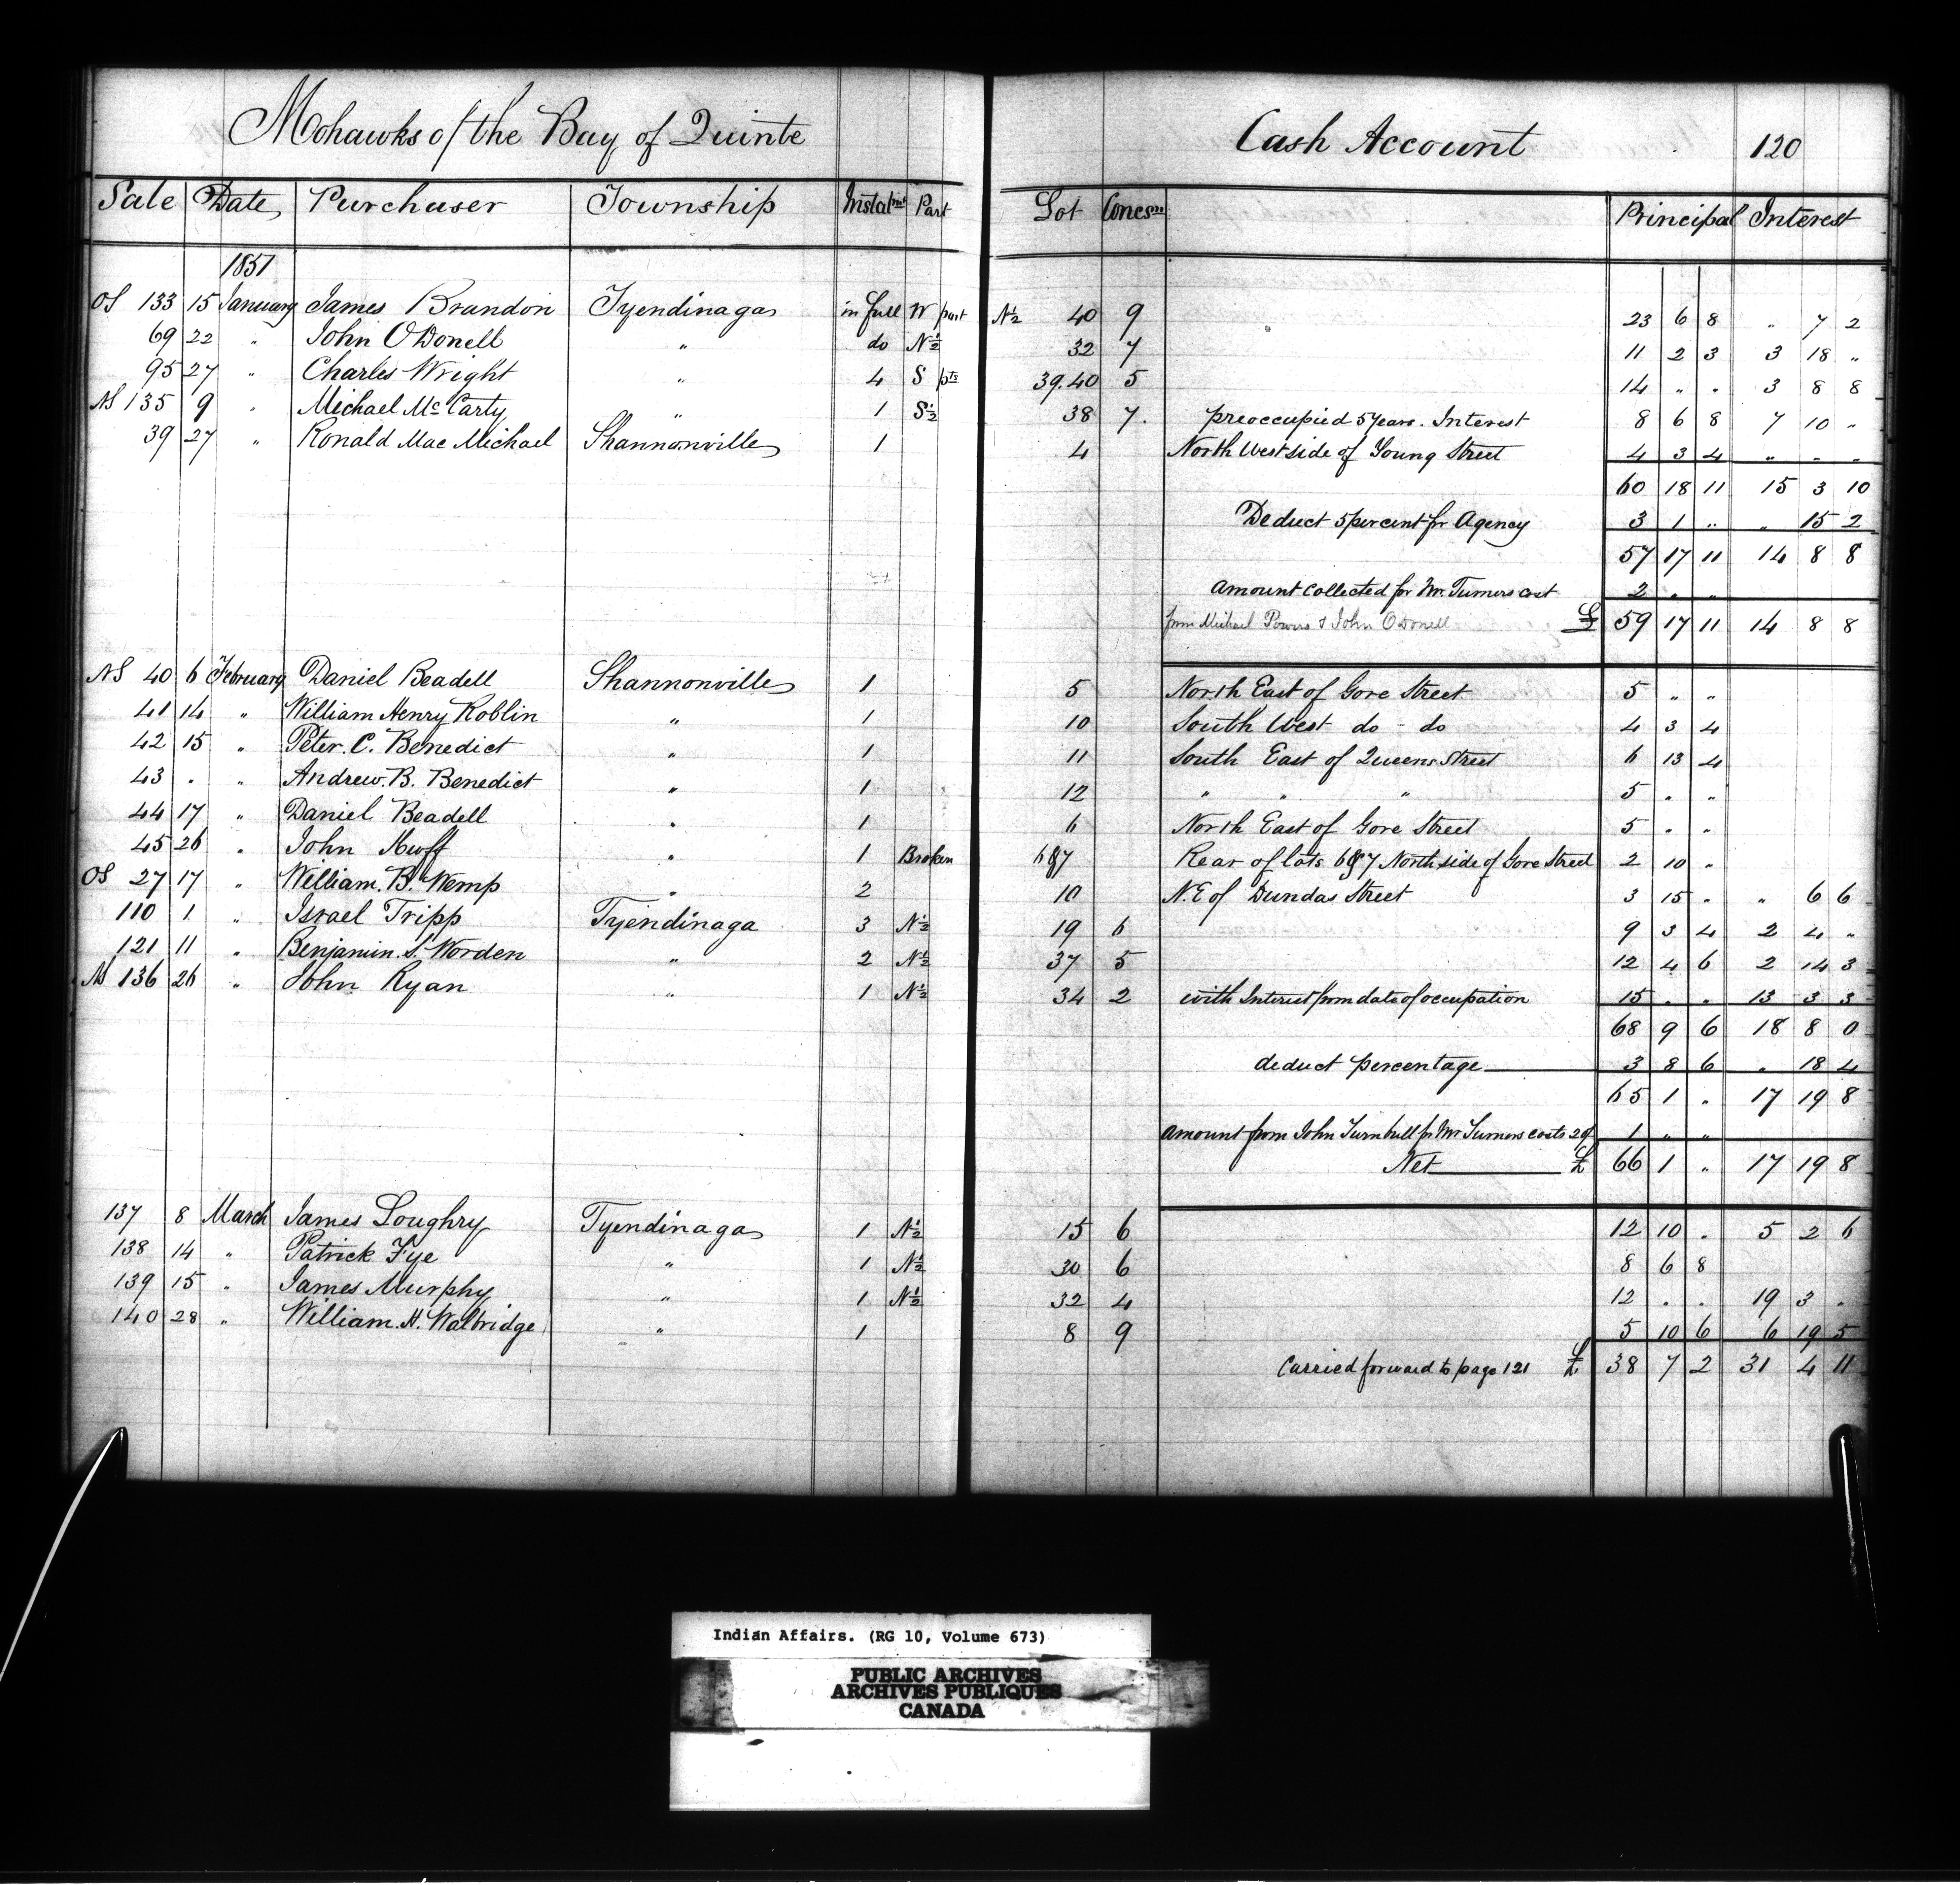 Mohawks of the Bay of Quinte Cash Account 120
Sale Date Purchaser Township Instalmt Part Lot Concesn Principal Interest
1851
OS 133 15 January James Brandon Tyendinaga in full W part N½ 40 9 23 6 8 " 7 2
69 22 " John O'Donell " do N½ 32 7 11 2 3 3 18 "
95 27 " Charles Wright " 4 S pts 39.40 5 14 " . 3 8 8
NS 135 9 " Michael McCarty " 1 S½ 38 7. preoccupied 5 years. Interest 8 6 8 7 10 "
39 27 " Ronald Mac Michael Shannonville 1 4 North West side of Young Street 4 3 4 " . .
60 18 11 15 3 10
Deduct 5 per cent for Agency 3 1 " " 15 2
57 17 11 14 8 8
Amount collected for Mr. Turners cost 2 . "
from Michael Powers & John O'Donell £ 59 17 11 14 8 8
NS 40 6 February Daniel Beadell Shannonville 1 5 North East of Gore Street. 5 " "
41 14 " William Henry Roblin " 1 10 South West do - do 4 3 4
42 15 " Peter. C. Benedict " 1 11 South East of Queens Street 6 13 4
43 . " Andrew. B. Benedict " 1 12 " " " 5 . "
44 17 " Daniel Beadell " 1 6 North East of Gore Street 5 . "
45 26 " John Huff " 1 Broken 6&7 Rear of lots 6&7 North side of Gore Street 2 10 "
OS 27 17 " William. B. Wemp " 2 10 N.E of Dundas Street 3 15 " " 6 6
110 1 " Israel Tripp Tyendinaga 3 N½ 19 6 9 3 4 2 4 "
121 11 " Benjamin. S. Worden " 2 N½ 37 5 12 4 6 2 14 3
NS 136 26 " John Ryan " 1 N½ 34 2 with Interest from date of occupation 15 . . 13 3 3
68 9 6 18 8 0
deduct percentage 3 8 6 . 18 4
65 1 " 17 19 8
Amount from John Turnbull for Mr Turners costs 20/ 1 " "
Net £ 66 1 " 17 19 8
137 8 March James Loughry Tyendinaga 1 N½ 15 6 12 10 . 5 2 6
138 14 " Patrick Fye " 1 N½ 30 6 8 6 8
139 15 " James Murphy " 1 N½ 32 4 12 . . 19 3 .
140 28 " William. H. Walbridge " 1 8 9 5 10 6 6 19 5
Carried forward to page 121 £ 38 7 2 31 4 11
Indian Affairs. (RG 10, Volume 673)
PUBLIC ARCHIVES
ARCHIVES PUBLIQUES
CANADA